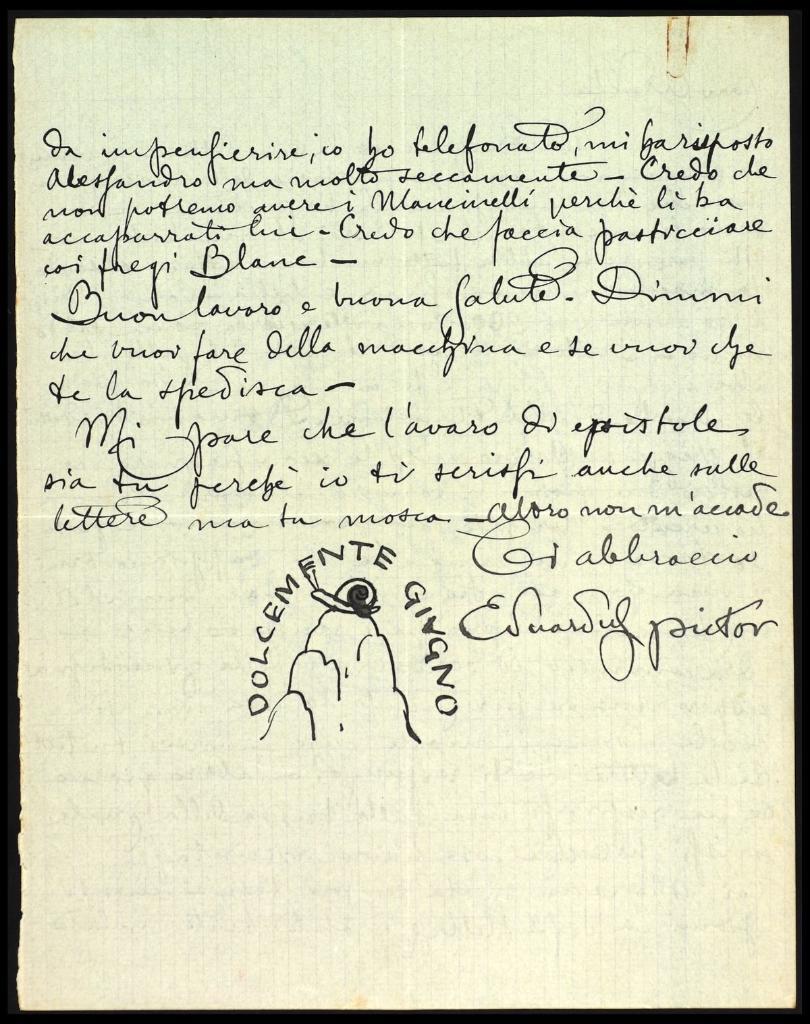 da impensierire, io ho telefonato, mi ha risposto
Alessandro ma molto seccamente – Credo che
non potremo avere i Mancinelli perchè li ha
accaparrati lui – Credo che faccia pasticciare
coi fregi Blanc –
Buon lavoro e buona salute – Dimmi
che vuoi fare della macchina e se vuoi che
te la spedisca –
Mi pare che l'avaro di epistole
sia tu perchè io ti scrissi anche sulle
lettere ma tu mosca – altro non m'accade
Ti abbraccio
Eduardus pictor
DOLCEMENTE GIVGNO